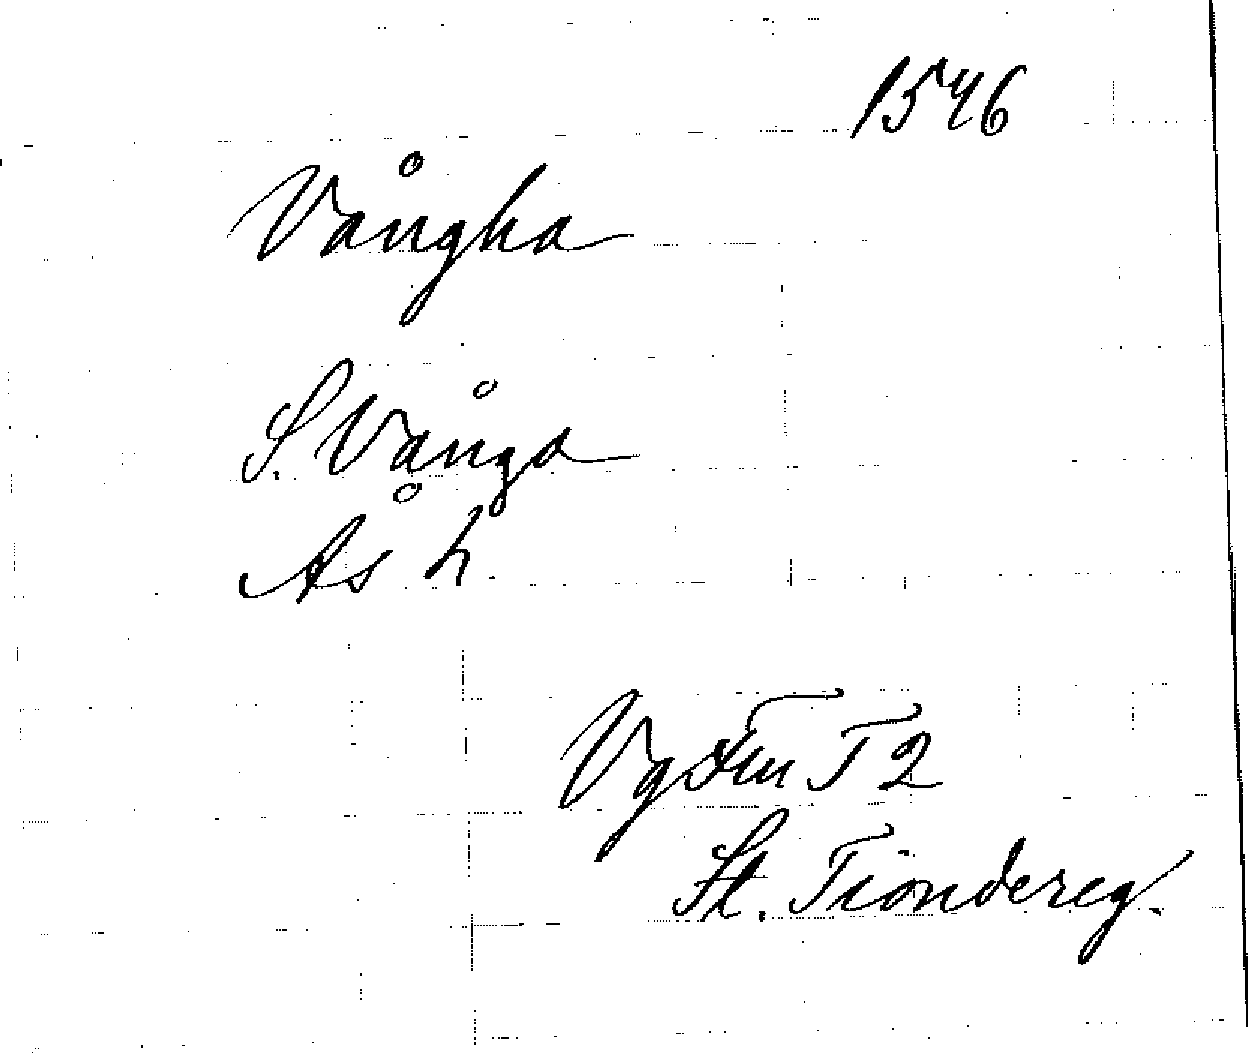 1546
Vångha
S. Vånga
Ås h
Vg T 2
St. Tiondereg.